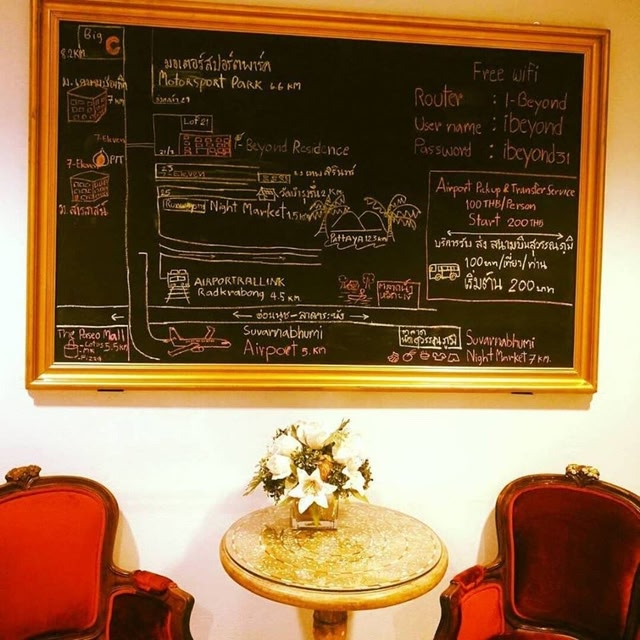 Big C
8.2 KM
7 KM
7-Eleven
7-Eleven PTT
มอเตอร์สปอร์ตพาร์ค
MOTORSPORT PARK 6.6 KM
LoF21
Beyond Residence
Night Market 1.5 KM
Pattaya 123 KM
AIRPORTRAILLINK
Radkrabang 4.5 KM.
อ่อนนุช-ลาดกระบัง
The Paseo Mall
Lotus 5.5 KM
Suvarnabhumi
Airport 5. KM
Suvarnabhumi
Night Market 7 KM.
Free wifi
Router : I-Beyond
User name : ibeyond
Password : ibeyond31
Airport Pickup & Transfer Service
100 THB/Person
Start 200 THB
บริการรับ ส่ง สนามบินสุวรรณภูมิ
100 บาท/เที่ยว/ท่าน
เริ่มต้น 200 บาท